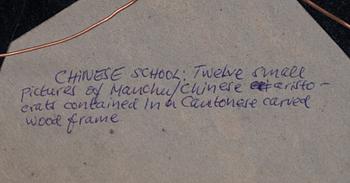 CHINESE SCHOOL: Twelve small
pictures of Manchu/Chinese aristo-
crats contained in a Cantonese carved
wood frame